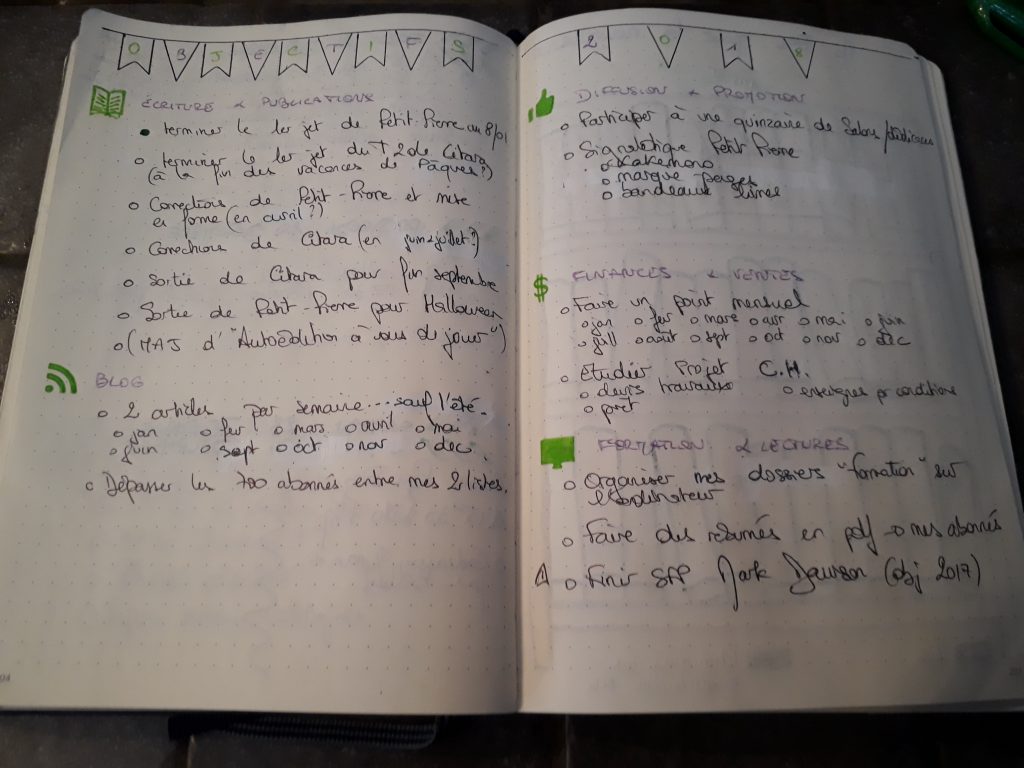 OBJECTIFS 2018
ÉCRITURE & PUBLICATIONS
• terminer le 1er jet de Petit-Pierre au 8/01
o terminer le 1er jet du T2 de Citara
(à la fin des vacances de Pâques?)
o Corrections de Petit-Pierre et mise
en forme (en avril?)
o Corrections de Citara (en juin-juillet?)
o Sortie de Citara pour fin septembre
o Sortie de Petit-Pierre pour Halloween
o (MAJ d'"Autoédition à vous de jouer")
BLOG
o 2 articles par semaine... sauf l'été.
o jan o fev o mars o avril o mai
o juin o sept o oct o nov o dec.
o Dépasser les 700 abonnés entre mes 2 listes.
DIFFUSION & PROMOTION
o Participer à une quinzaine de Salons/dédicaces
o Signalétique Petit Pierre
o Kakemono
o marque pages
o bandeaux
FINANCES & VENTES
o Faire un point mensuel
o jan o fev o mars o avr o mai o juin
o juill o août o sept o oct o nov o déc
o Etudier Projet C.H.
o devis travaux o enseignes
o prêt
FORMATION & LECTURES
o Organiser mes dossiers "formation" sur
l'ordinateur
o Faire des résumés en pdf → mes abonnés
o Finir SPF Mark Dawson (obj 2017)